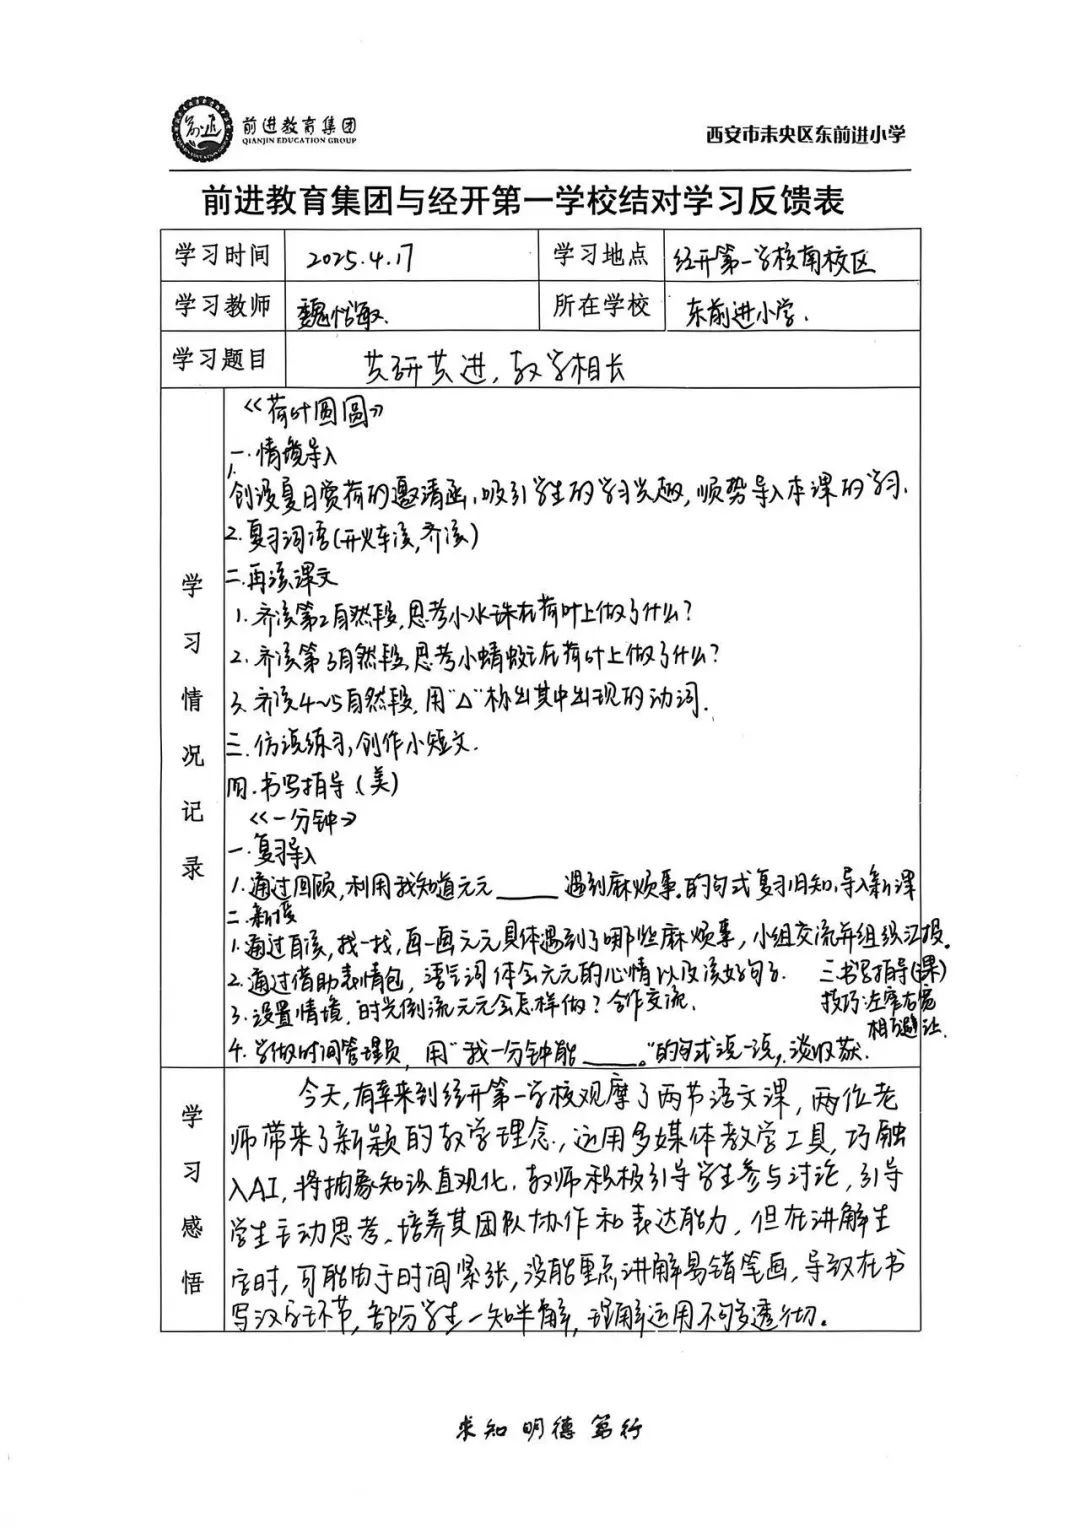 前进教育集团
QIANJIN EDUCATION GROUP
西安市未央区东前进小学
前进教育集团与经开第一学校结对学习反馈表
学习时间 2025.4.17 学习地点 经开第一学校南校区
学习教师 魏恺敏. 所在学校 东前进小学.
学习题目 共研共进,教学相长
学习情况记录
《荷叶圆圆》
一.情境导入
1.
创设夏日赏荷的邀请函,吸引学生的学习兴趣,顺势导入本课的学习.
2.复习词语(开火车读,齐读)
二.再读课文
1.齐读第2自然段,思考小水珠在荷叶上做了什么?
2.齐读第3自然段,思考小蜻蜓在荷叶上做了什么?
3.齐读4~5自然段,用"△"标出其中出现的动词.
三.仿说练习,创作小短文.
四.书写指导.(美)
《一分钟》
一.复习导入
1.通过回顾,利用我知道元元____遇到麻烦事.的句式复习旧知,导入新课
二.新授
1.通过自读,找一找,画一画元元具体遇到了哪些麻烦事,小组交流并组织汇报.
2.通过借助表情包,语气词体会元元的心情以及读好句子. 三.书写指导(课)
3.设置情境,时光倒流元元会怎样做?合作交流. 技巧:左窄右宽
相互避让.
4.学做时间管理员,用"我一分钟能____。"的句式说一说,谈收获.
学习感悟
今天,有幸来到经开第一学校观摩了两节语文课,两位老
师带来了新颖的教学理念,运用多媒体教学工具,巧融
入AI,将抽象知识直观化.教师积极引导学生参与讨论,引导
学生主动思考、培养其团队协作和表达能力,但在讲解生
字时,可能由于时间紧张,没能重点讲解易错笔画,导致在书
写汉字环节,部分学生一知半解,理解运用不够透彻。
求知 明德 笃行